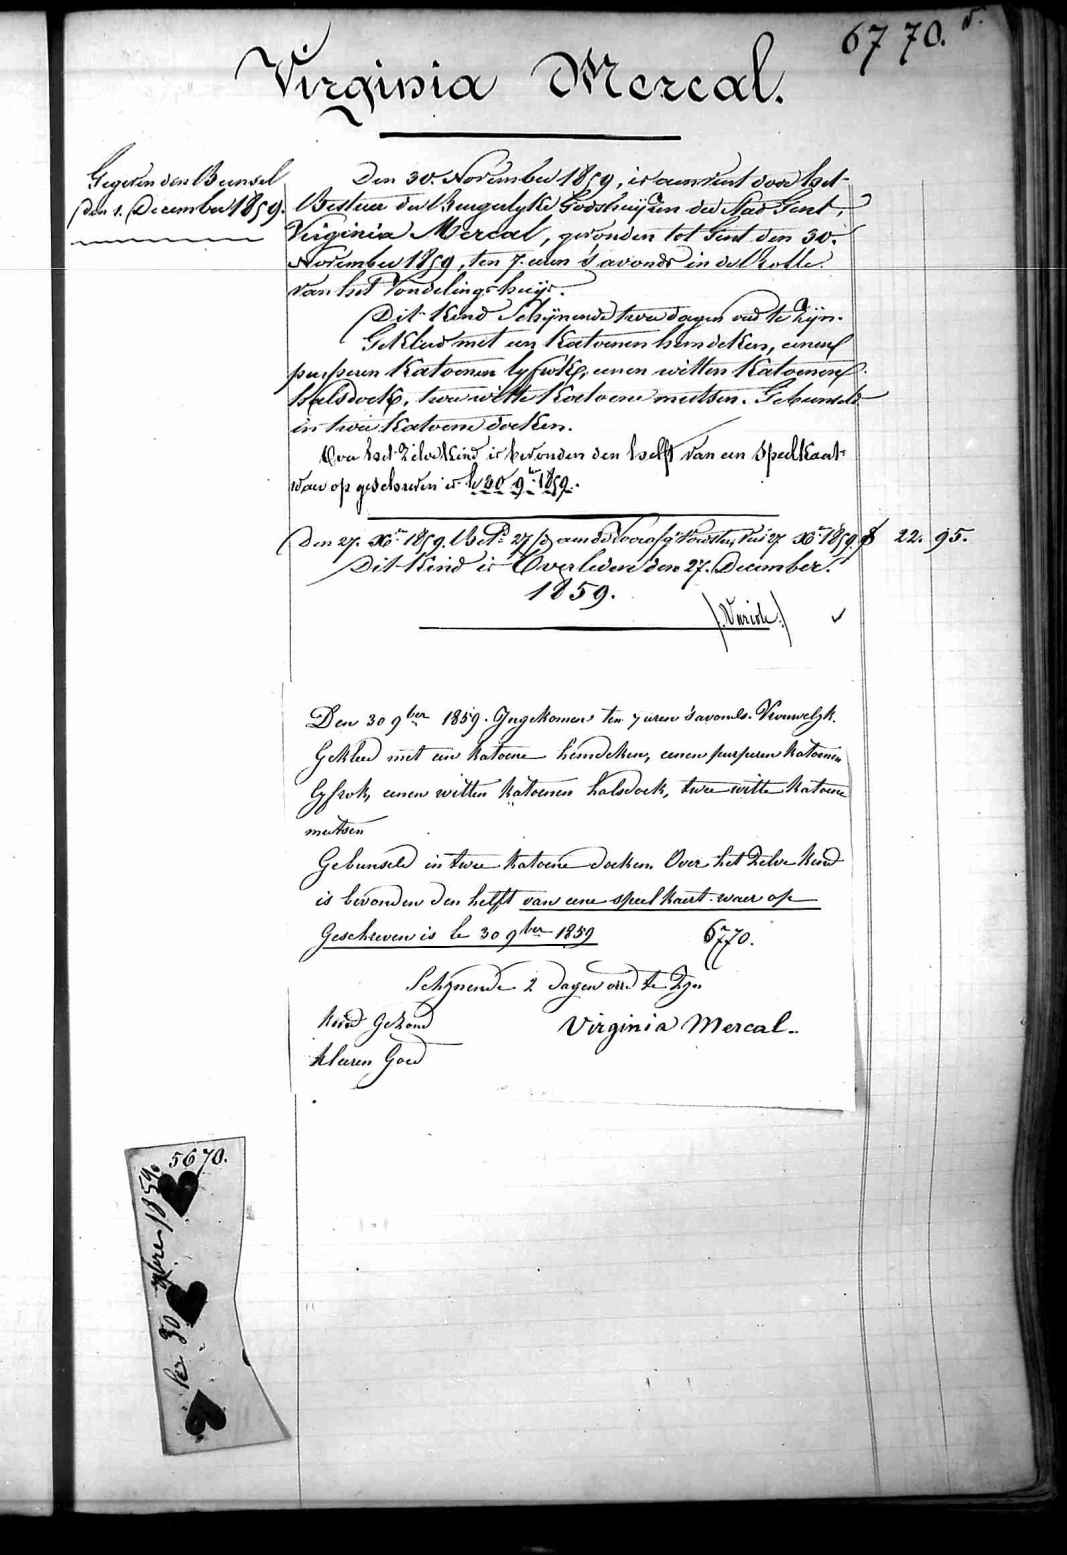 6770.
Virginia Mercal.
Gegeven den Bunsel
den 1. December 1859.
Den 30. November 1859, is aenveird door het
Bestuur der Burgerlyke Godshuizen der Stad Gent,
Virginia Mercal, gevonden tot Gent den 30.
November 1859, ten 7. uren 's avonds in de Rolle
van het Vondelingshuijs.
Dit Kind Schynende twee dagen oud te Zijn.
Gekleed met een Katoenen hemdeken, eenen
purperen Katoenen lyfrok, eenen witten Katoenen
halsdoek, twee witte Katoene mutsen. Gebunseld
in twee Katoene doeken.
Over het Zelve Kind is bevonden den helft van een Speelkaart
waer op geschreven is le 30 9br 1859.
Den 27. Xbr 1859. 27 aen de 27 Xbr 1859. 22. 95.
Dit Kind is Overleden den 27. December
1859.
(Variole.)
Den 30 9ber 1859. Ingekomen ten 7 uren 's avonds. Vrouwelyk.
Gekleed met een katoene hemdeken, eenen purperen katoenen
lyfrok, eenen witten katoenen halsdoek, twee witte katoene
mutsen
Gebunseld in twee katoene doeken. Over het Zelve kind
is bevonden den helft van eene speelkaert waer op
Geschreven is le 30 9ber 1859
6770.
Schynende 2 dagen oud te Zyn
Kind Gezond
Virginia Mercal.
Kleeren Goed
5670.
le 30 9bre 1859